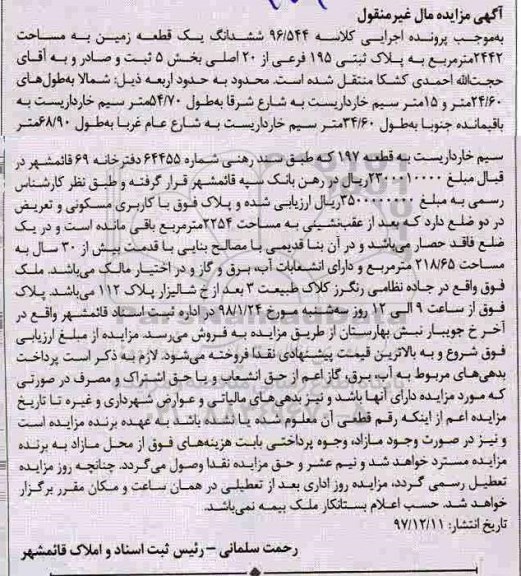 آگهی مزایده مال غیرمنقول
به‌موجب پرونده اجرایی کلاسه ۹۶/۵۴۴ ششدانگ یک قطعه زمین به مساحت
۲۴۴۲مترمربع به پلاک ثبتی ۱۹۵ فرعی از ۲۰ اصلی بخش ۵ ثبت و صادر و به آقای
حجت‌الله احمدی کشکا منتقل شده است. محدود به حدود اربعه ذیل: شمالا به‌طول‌های
۲۴/۶۰متر و ۱۵متر سیم خارداریست به شارع شرقا به‌طول ۵۴/۷۰متر سیم خارداریست به
باقیمانده جنوبا به‌طول ۳۴/۶۰متر سیم خارداریست به شارع عام غربا به‌طول ۶۸/۹۰متر
سیم خارداریست به قطعه ۱۹۷ که طبق سند رهنی شماره ۶۴۴۵۵ دفترخانه ۶۹ قائمشهر در
قبال مبلغ ۲۳۰۰۰۱۰۰۰۰ریال در رهن بانک سپه قائمشهر قرار گرفته و طبق نظر کارشناس
رسمی به مبلغ ۳۵۰۰۰۰۰۰۰۰ریال ارزیابی شده و پلاک فوق با کاربری مسکونی و تعریض
در دو ضلع دارد که بعد از عقب‌نشینی به مساحت ۲۲۵۴مترمربع باقی مانده است و در یک
ضلع فاقد حصار می‌باشد و در آن بنا قدیمی با مصالح بنایی با قدمت بیش از ۳۰ سال به
مساحت ۲۱۸/۶۵ مترمربع و دارای انشعابات آب، برق و گاز و در اختیار مالک می‌باشد. ملک
فوق واقع در جاده نظامی رنگرز کلاک طبیعت ۳ بعد از خ شالیزار پلاک ۱۱۲ می‌باشد. پلاک
فوق از ساعت ۹ الی ۱۲ روز سه‌شنبه مورخ ۹۸/۱/۲۴ در اداره ثبت اسناد قائمشهر واقع در
آخر خ جویبار نبش بهارستان از طریق مزایده به فروش می‌رسد. مزایده از مبلغ ارزیابی
فوق شروع و به بالاترین قیمت پیشنهادی نقدا فروخته می‌شود. لازم به ذکر است پرداخت
بدهی‌های مربوط به آب، برق، گاز اعم از حق انشعاب و یا حق اشتراک و مصرف در صورتی
که مورد مزایده دارای آنها باشد و نیز بدهی‌های مالیاتی و عوارض شهرداری و غیره تا تاریخ
مزایده اعم از اینکه رقم قطعی آن معلوم شده یا نشده باشد به عهده برنده مزایده است
و نیز در صورت وجود مازاد، وجوه پرداختی بابت هزینه‌های فوق از محل مازاد به برنده
مزایده مسترد خواهد شد و نیم عشر و حق مزایده نقدا وصول می‌گردد. چنانچه روز مزایده
تعطیل رسمی گردد، مزایده روز اداری بعد از تعطیلی در همان ساعت و مکان مقرر برگزار
خواهد شد. حسب اعلام بستانکار ملک بیمه نمی‌باشد.
تاریخ انتشار: ۹۷/۱۲/۱۱
رحمت سلمانی – رئیس ثبت اسناد و املاک قائمشهر